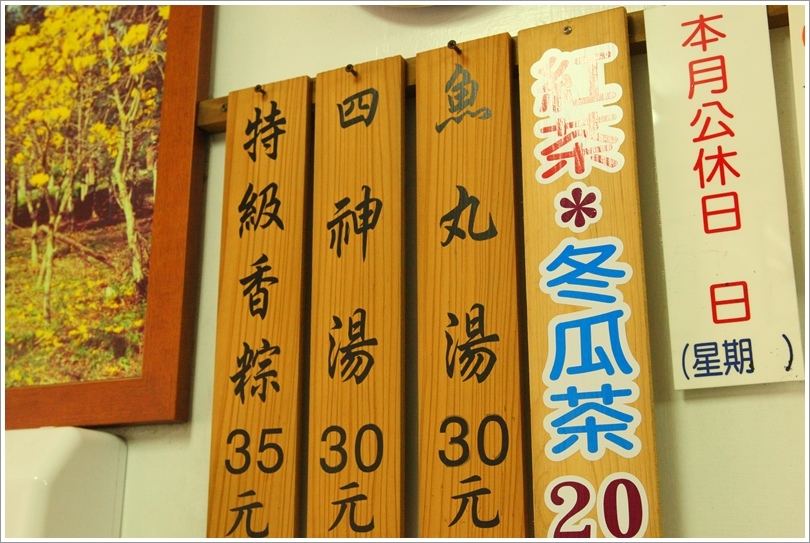 特級香粽35元
四神湯30元
魚丸湯30元
紅茶*冬瓜茶20
本月公休日 日
(星期 )